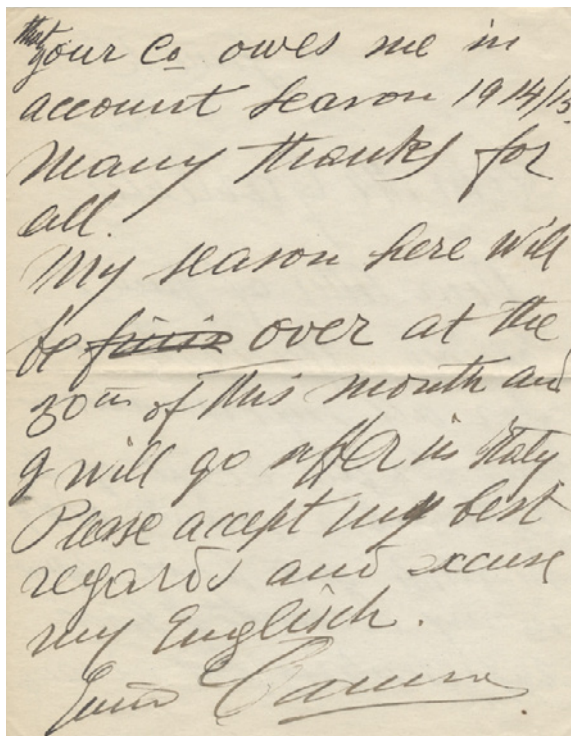 that
your Co. owes me in
account season 1914/15
Many thanks for
all.
My season here will
be finis over at the
30th of this month and
I will go after in Italy
Please accept my best
regards and excuse
my Englisch.
Enrico Caruso